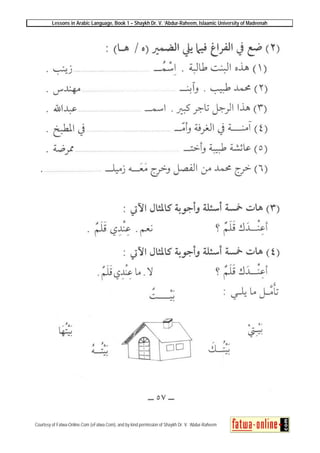 Lessons in Arabic Language, Book 1 – Shaykh Dr. V. 'Abdur-Raheem, Islaamic University of Madeenah
(٢) ضع في الفراغ فيما يلي الضمير (ه / هـا) :
(١) هذه البنت طالبة . اِسْمُـــ ........ زينب .
(٢) محمد طبيب . وابنـــ ........ مهندس .
(٣) هذا الرجل تاجر كبير . اسمـــ ........ عبدالله .
(٤) آمنـــة في الغرفة وأمّـــ ........ في المطبخ .
(٥) عائشة طبيبة وأختـــ ........ ممرضة .
(٦) خرج محمد من الفصل وخرج مَعَـــه زميلـــ ........ .
(٣) هات خمسة أسئلة وأجوبة كالمثال الآتي :
أعِنْـــدَك قَلَمٌ ؟ نعم . عِنْدِي قَلَمٌ .
(٤) هات خمسة أسئلة وأجوبة كالمثال الآتي :
أعِنْـــدَك قَلَمٌ ؟ لا . ما عِنْدِي قَلَمٌ .
تَأَمَّـــل ما يلـــي :
بَيْـــــتٌ
بَيْـتِيْ بَيْتُها
بَيْـتُـــكَ بَيْتُـــهُ
ـــ ٥٧ ـــ
Courtesy of Fatwa-Online.Com (eFatwa.Com), and by kind permission of Shaykh Dr. V. 'Abdur-Raheem
fatwa-online.com